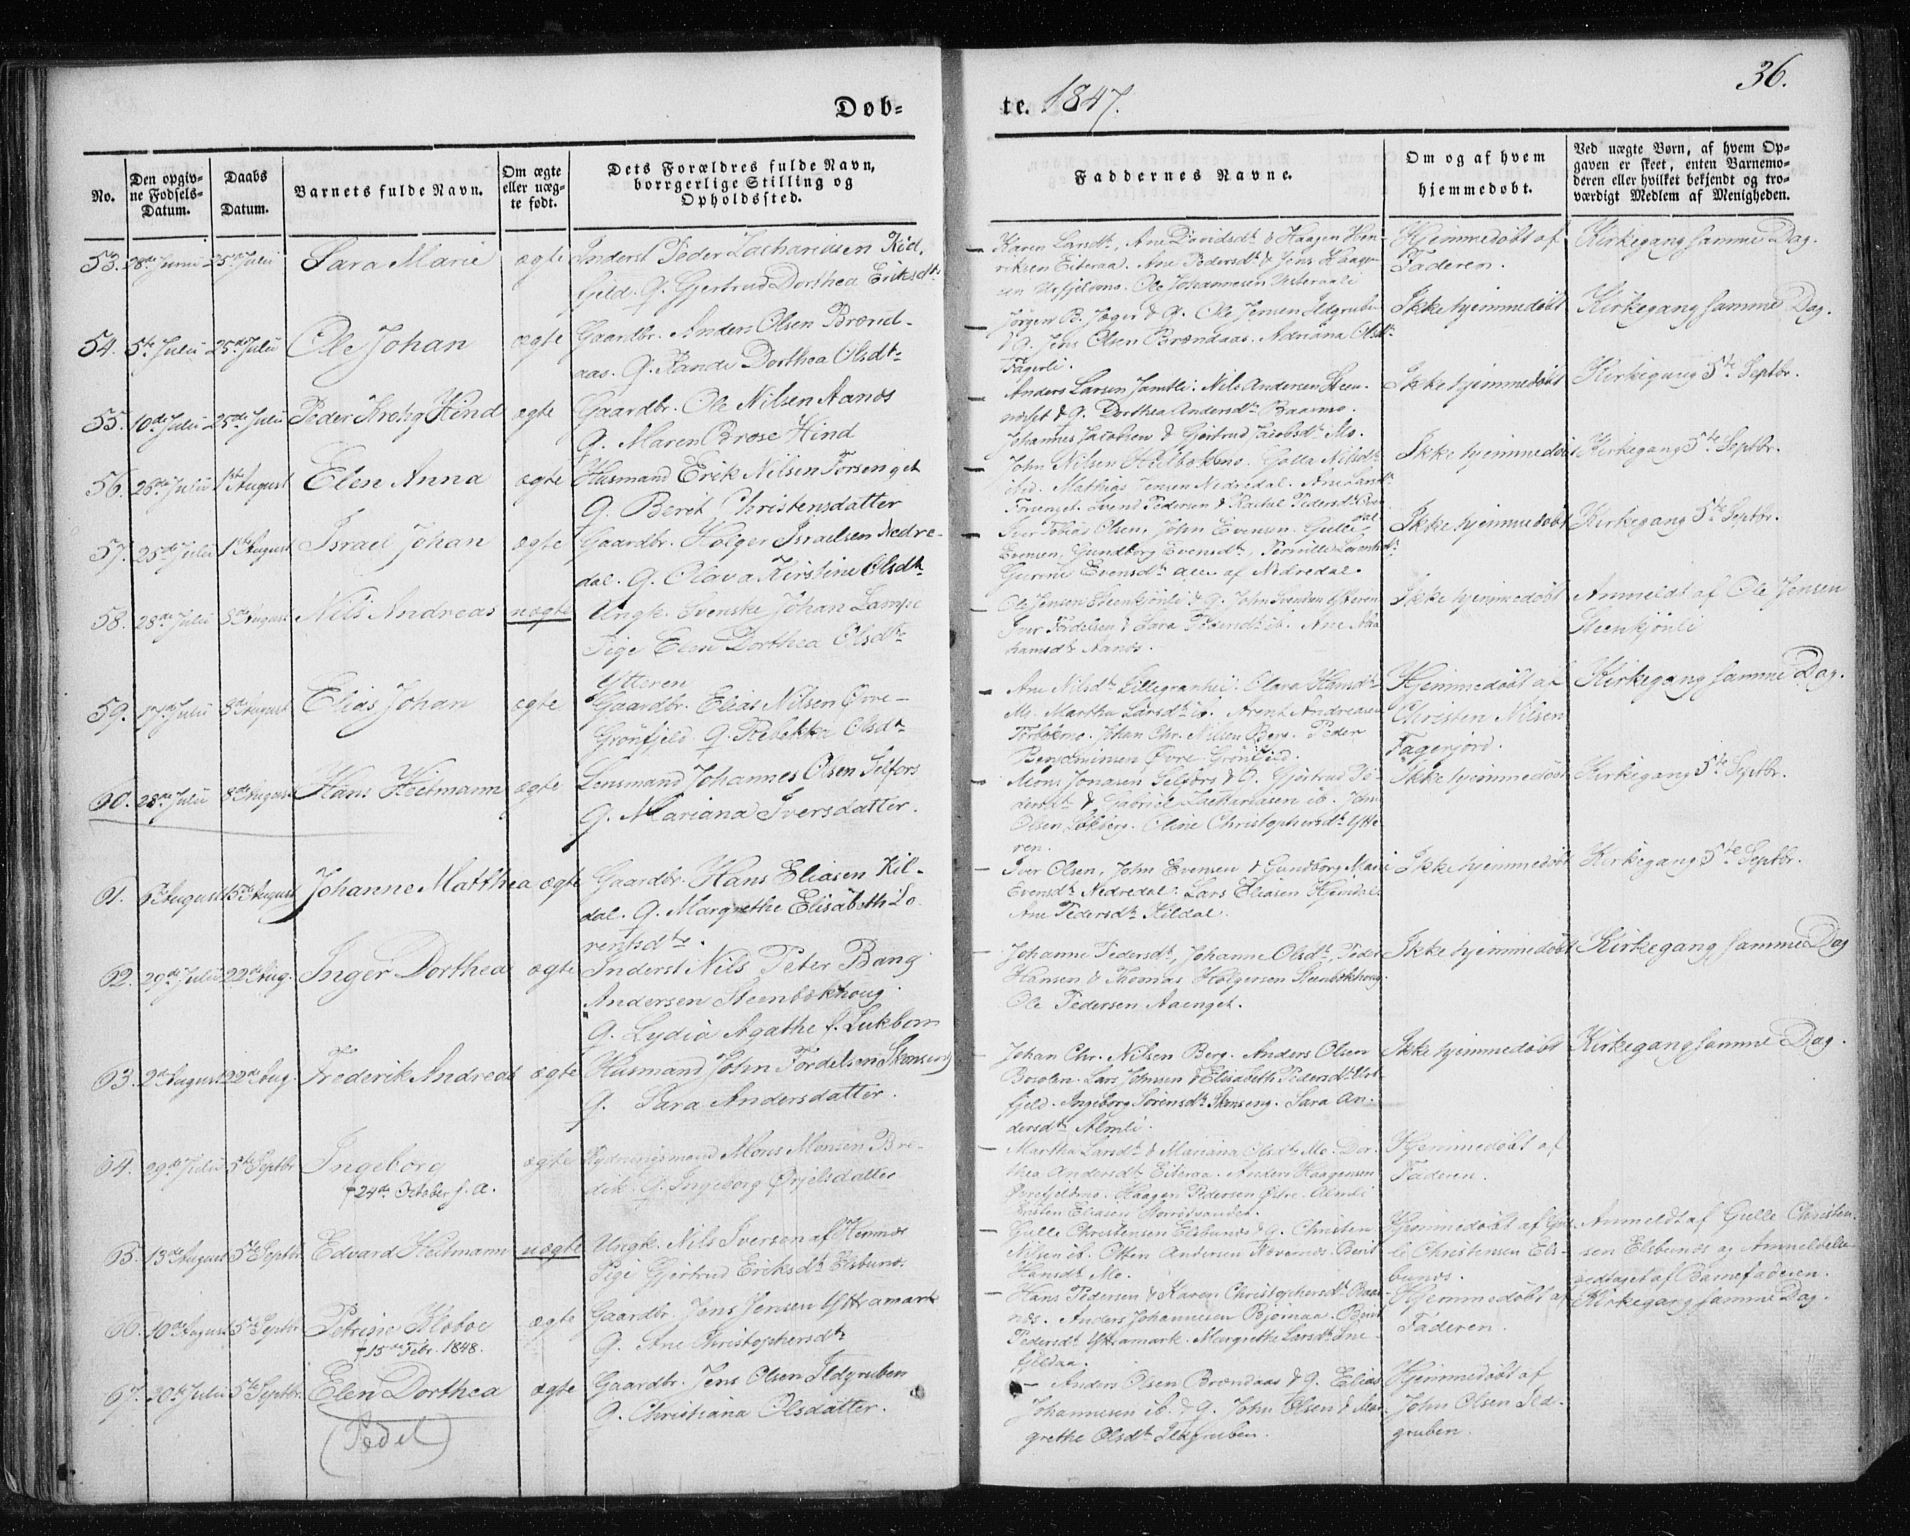 36.
Døb=
te. 1847.
No.
Den opgiv-
ne Fødsels-
Datum.
Daabs
Datum.
Barnets fulde Navn.
Om ægte
eller uæg-
te født.
Dets Forældres fulde Navn,
borrgerlige Stilling og
Opholdssted.
Faddernes Navne.
Om og af hvem
hjemmedøbt.
Ved uægte Børn, af hvem Op-
gaven er skeet, enten Barnemo-
deren eller hvilket bekjendt og tro-
værdigt Medlem af Menigheden.
53. 28de Junii 25de Julii Sara Marie ægte Inderst Peder Zachariasen Kid,
Geld. Q. Gertrud Dorthea Eriksdtr
Karen Larsdt., Ane Davidsdt. & Haagen Hen-
riksen Eiteraa. Ane Pedersdt. & Jens Haagen-
sen Ursfjeldmo. Ole Johannesen
Hjemmedøbt af
Faderen.
Kirkegang samme Dag.
54. 5te Julii 25de Julii Ole Johan ægte Gaardbr. Anders Olsen Brænd-
aas. Q. Rande Dorthea Olsdtr
Jørgen B. Jæger & Q. Ole Jensen Ildgruben
& Q. Jens Olsen Brændaas. Adriana Olsdtr
Fagerli.
Ikke hjemmedøbt
Kirkegang samme Dag.
55. 10de Julii 25de Julii Peder Krohg Hind ægte Gaardbr. Ole Nilsen Aanæs
Q. Maren Brose Hind
Anders Larsen Jamtli. Nils Andersen Steen-
neset & Q. Dorthea Andersdt. Baarmo.
Johannes Jacobsen & Gjertrud Jacobsdt. Mo.
Ikke hjemmedøbt
Kirkegang 5te Septbr.
56. 26de Julii 1ste August Elen Anna ægte Husmand Erik Nilsen Forsenget
Q. Berit Christensdatter
John Nilsen Golla Nilsdt.
ibd. Mathias Jensen Nedredal. Ane Larsdt.
Svend Pedersen & Rachel Pedersdt.
Ikke hjemmedøbt
Kirkegang 5te Septbr.
57. 25de Julii 1ste August Israel Johan ægte Gaardbr. Holger Israelsen Nedre-
dal. Q. Olava Kirstine Olsdtr.
Iver Tobias Olsen, John Evensen, Gulle
Evensen, Gundborg Evensdt., Pernille Larentsdt.
Gurine Evensdt. alle af Nedredal.
Ikke hjemmedøbt
Kirkegang 5te Septbr.
58. 28de Julii 8de August Nils Andreas uægte Ungk. Svenske Johan Lampe
Pige Elen Dorthea Olsdtr
Ytteren
Ole Jensen Steenkjønli & Q. John Svendsen Ytteren
Iver Tørdelsen & Sara Pedersdt. ib. Ane Abra-
hamsdt. Aanæs.
Ikke hjemmedøbt
Anmeldt af Ole Jensen
Steenkjønli
59. 17de Julii 8de August Elias Johan ægte Gaardbr. Elias Nilsen Øvre-
Grønfjeld Q. Rebekka Olsdtr
Ane Nilsdt. Lillegranhei. Olava Hansdt.
Mo. Martha Larsdt. ib. Arent Andreasen
Johan Chr. Nilsen Berg. Peder
Benjaminsen Øvre Grønfjeld.
Hjemmedøbt af
Christen Nilsen
Fagerjord.
Kirkegang samme Dag.
60. 28de Julii 8de August Hans Heitmann ægte Lensmand Johannes Olsen Selfors
Q. Mariana Iversdatter.
Mons Jonasen Selfors & Q. Gjertrud Pe-
dersdt. & Gabriel Zachariasen ib. John
Olsen Oline Christophersdt. Ytte-
ren.
Ikke hjemmedøbt
Kirkegang 5te Septbr.
61. 6te August 15de August Johanne Matthea ægte Gaardbr. Hans Eliasen Kil-
dal. Q. Margrethe Elisabeth Lo-
rentsdtr.
Iver Olsen, John Evensen & Gundborg Marie
Evensdt. Nedredal. Lars Eliasen
Ane Pedersdt. Kildal.
Ikke hjemmedøbt
Kirkegang 5te Septbr.
62. 29de Julii 22de Aug. Inger Dorthea ægte Inderst Nils Peter Bang
Andersen Steenbækhoug.
Q. Lydia Agathe f. Lukborn
Johanne Pedersdt., Johanne Olsdt., Peder
Hansen & Thomas Holgersen Steenbækhoug.
Ole Pedersen Aaenget.
Ikke hjemmedøbt
Kirkegang samme Dag
63. 2de August 22de Aug. Frederik Andreas ægte Husmand John Tørdelsen Skonseng
Q. Sara Andersdatter.
Johan Chr. Nilsen Berg. Anders Olsen
Bosolen. Lars Johnsen & Elisabeth Pedersdt.
Ingeborg Sørensdt. Skonseng. Sara An-
dersdt. Almli.
Ikke hjemmedøbt
Kirkegang samme Dag.
64. 29de Julii 5te Septbr. Ingeborg
†24de October s. a.
ægte Rydningsmand Mons Monsen Bre-
dek. Q. Ingeborg Ørjelsdatter
Martha Larsdt. & Mariana Olsdt. Mo. Dor-
thea Andersdt. Eiteraa. Anders Haagensen
Haagen Pedersen Øvre Almli
Eliasen
Hjemmedøbt af
Faderen.
65. 13de August 5te Septbr. Edvard Heitmann uægte Ungk. Nils Iversen af Hemnæs
Pige Gjertrud Eriksdt. Elsbunds.
Gulle Christensen Elsbunds & Q. Christen
Nilsen ib. Otten Andersen Berit
Hansdt. Mo.
Hjemmedøbt af Gul-
le Christensen Els-
bunds.
Anmeldt af Gulle Christen-
sen Elsbunds og Anmeldelse
vedtaget af Barnefaderen.
66. 10de August 5te Septbr. Petrine Koboe
†15de Febr. 1848.
ægte Gaardbr. Jens Jensen Yttramark
Q. Ane Christophersdtr
Hans Pedersen & Karen Christophersdt.
Anders Johannesen Bjørnaa. Berit
Pedersdt. Yttramark. Margrethe Larsdt.
Hjemmedøbt af
Faderen.
Kirkegang samme Dag.
67. 30te Julii 5te Septbr. Elen Dorthea
(Pedel)
ægte Gaardbr. Jens Olsen Ildgruben
Q. Christiana Olsdatter.
Anders Olsen Brændaas & Q. Elias
Johannesen ib. & Q. John Olsen & Mar-
grethe Olsdt. Ildgruben.
Hjemmedøbt af
John Olsen Ild-
gruben.